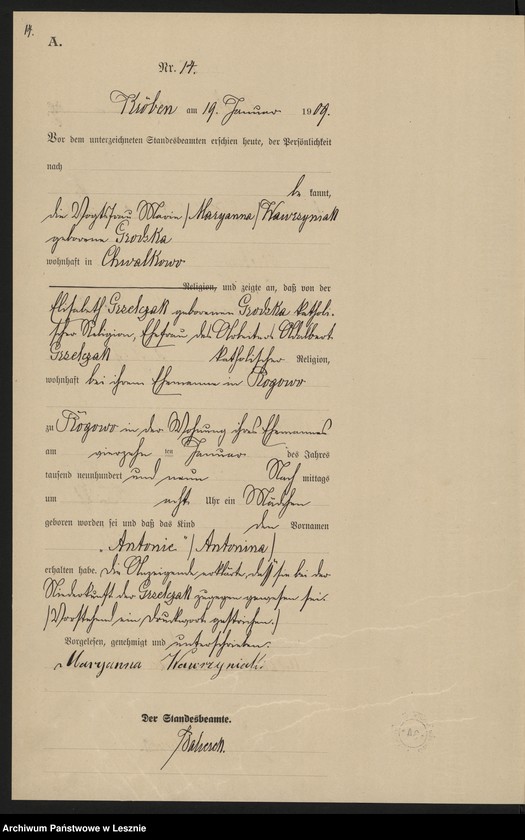 14.
A.
Nr. 14.
Kröben am 19. Januar 1909.
Vor dem unterzeichneten Standesbeamten erschien heute, der Persönlichkeit
nach
be kannt,
die Vogtsfrau Marie /Maryanna/ Wawrzyniak
geborene Grodzka
wohnhaft in Chwalkowo
Religion, und zeigte an, daß von der
Elisabeth Grzelczak geborenen Grodzka katholi-
scher Religion, Ehefrau des Arbeiters Adalbert
Grzelczak katholischer Religion,
wohnhaft bei ihrem Ehemanne in Rogowo
zu Rogowo in der Wohnung ihres Ehemannes
am vierzehn ten Januar des Jahres
tausend neunhundert und neun Nach mittags
um acht Uhr ein Mädchen
geboren worden sei und daß das Kind den Vornamen
„Antonie“ /Antonina/
erhalten habe. Die Anzeigende erklärte, daß sie bei der
Niederkunft der Grzelczak zugegen gewesen sei.
/Vorstehend ein Druckwort gestrichen./
Vorgelesen, genehmigt und unterschrieben.
Maryanna Wawrzyniak.
Der Standesbeamte.
Archiwum Państwowe w Lesznie